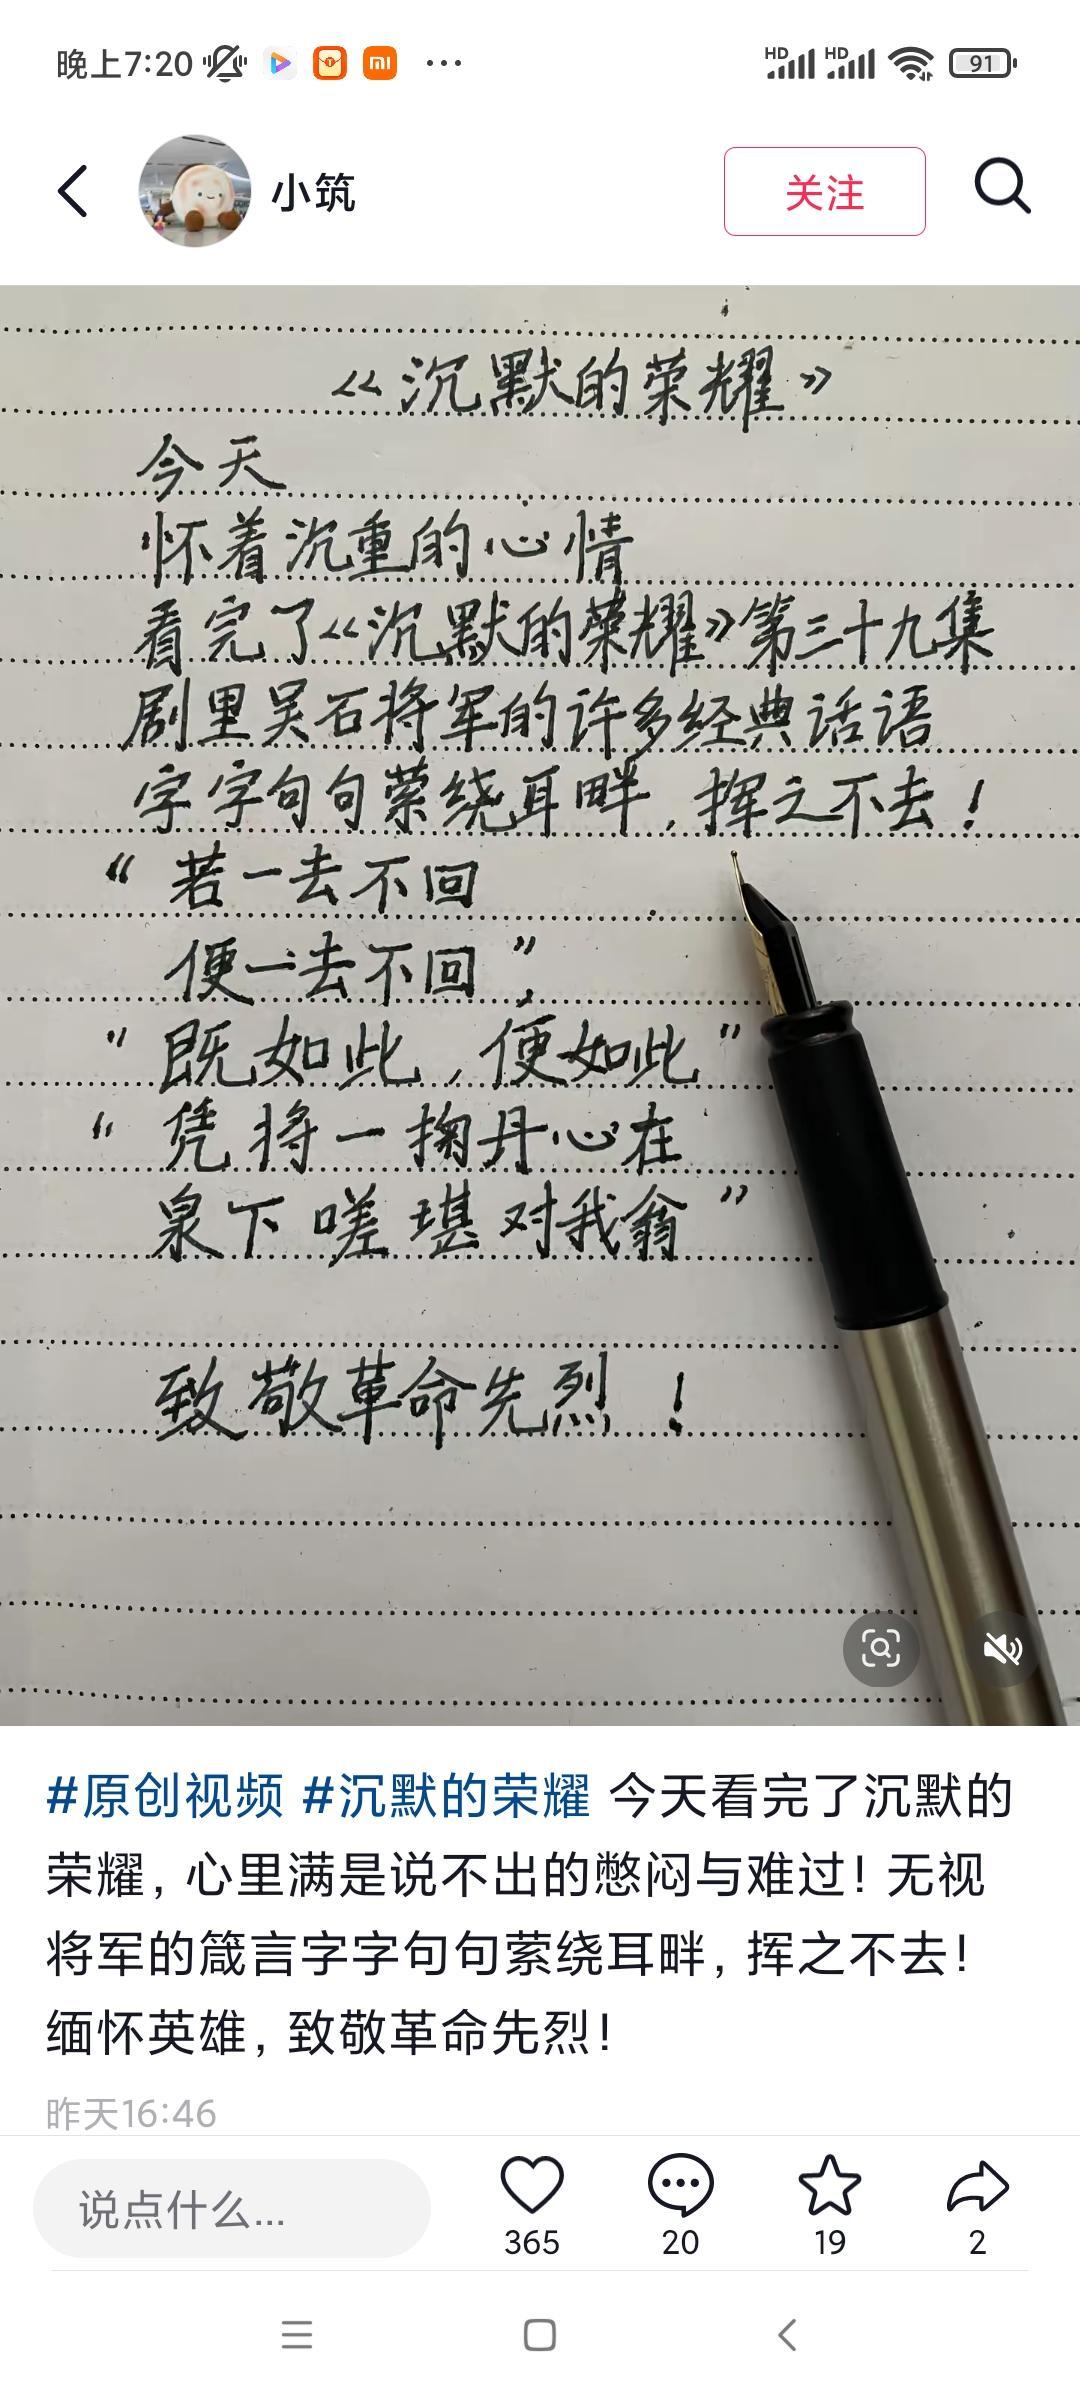 晚上7:20
HD HD 91
小筑
关注
《沉默的荣耀》
今天
怀着沉重的心情
看完了《沉默的荣耀》第三十九集
剧里吴石将军的许多经典话语
字字句句萦绕耳畔,挥之不去!
“若一去不回
便一去不回”,
“既如此,便如此”
“凭将一掬丹心在
泉下嗟堪对我翁”
致敬革命先烈!
#原创视频 #沉默的荣耀 今天看完了沉默的
荣耀,心里满是说不出的憋闷与难过!无视
将军的箴言字字句句萦绕耳畔,挥之不去!
缅怀英雄,致敬革命先烈!
昨天16:46
说点什么...
365 20 19 2